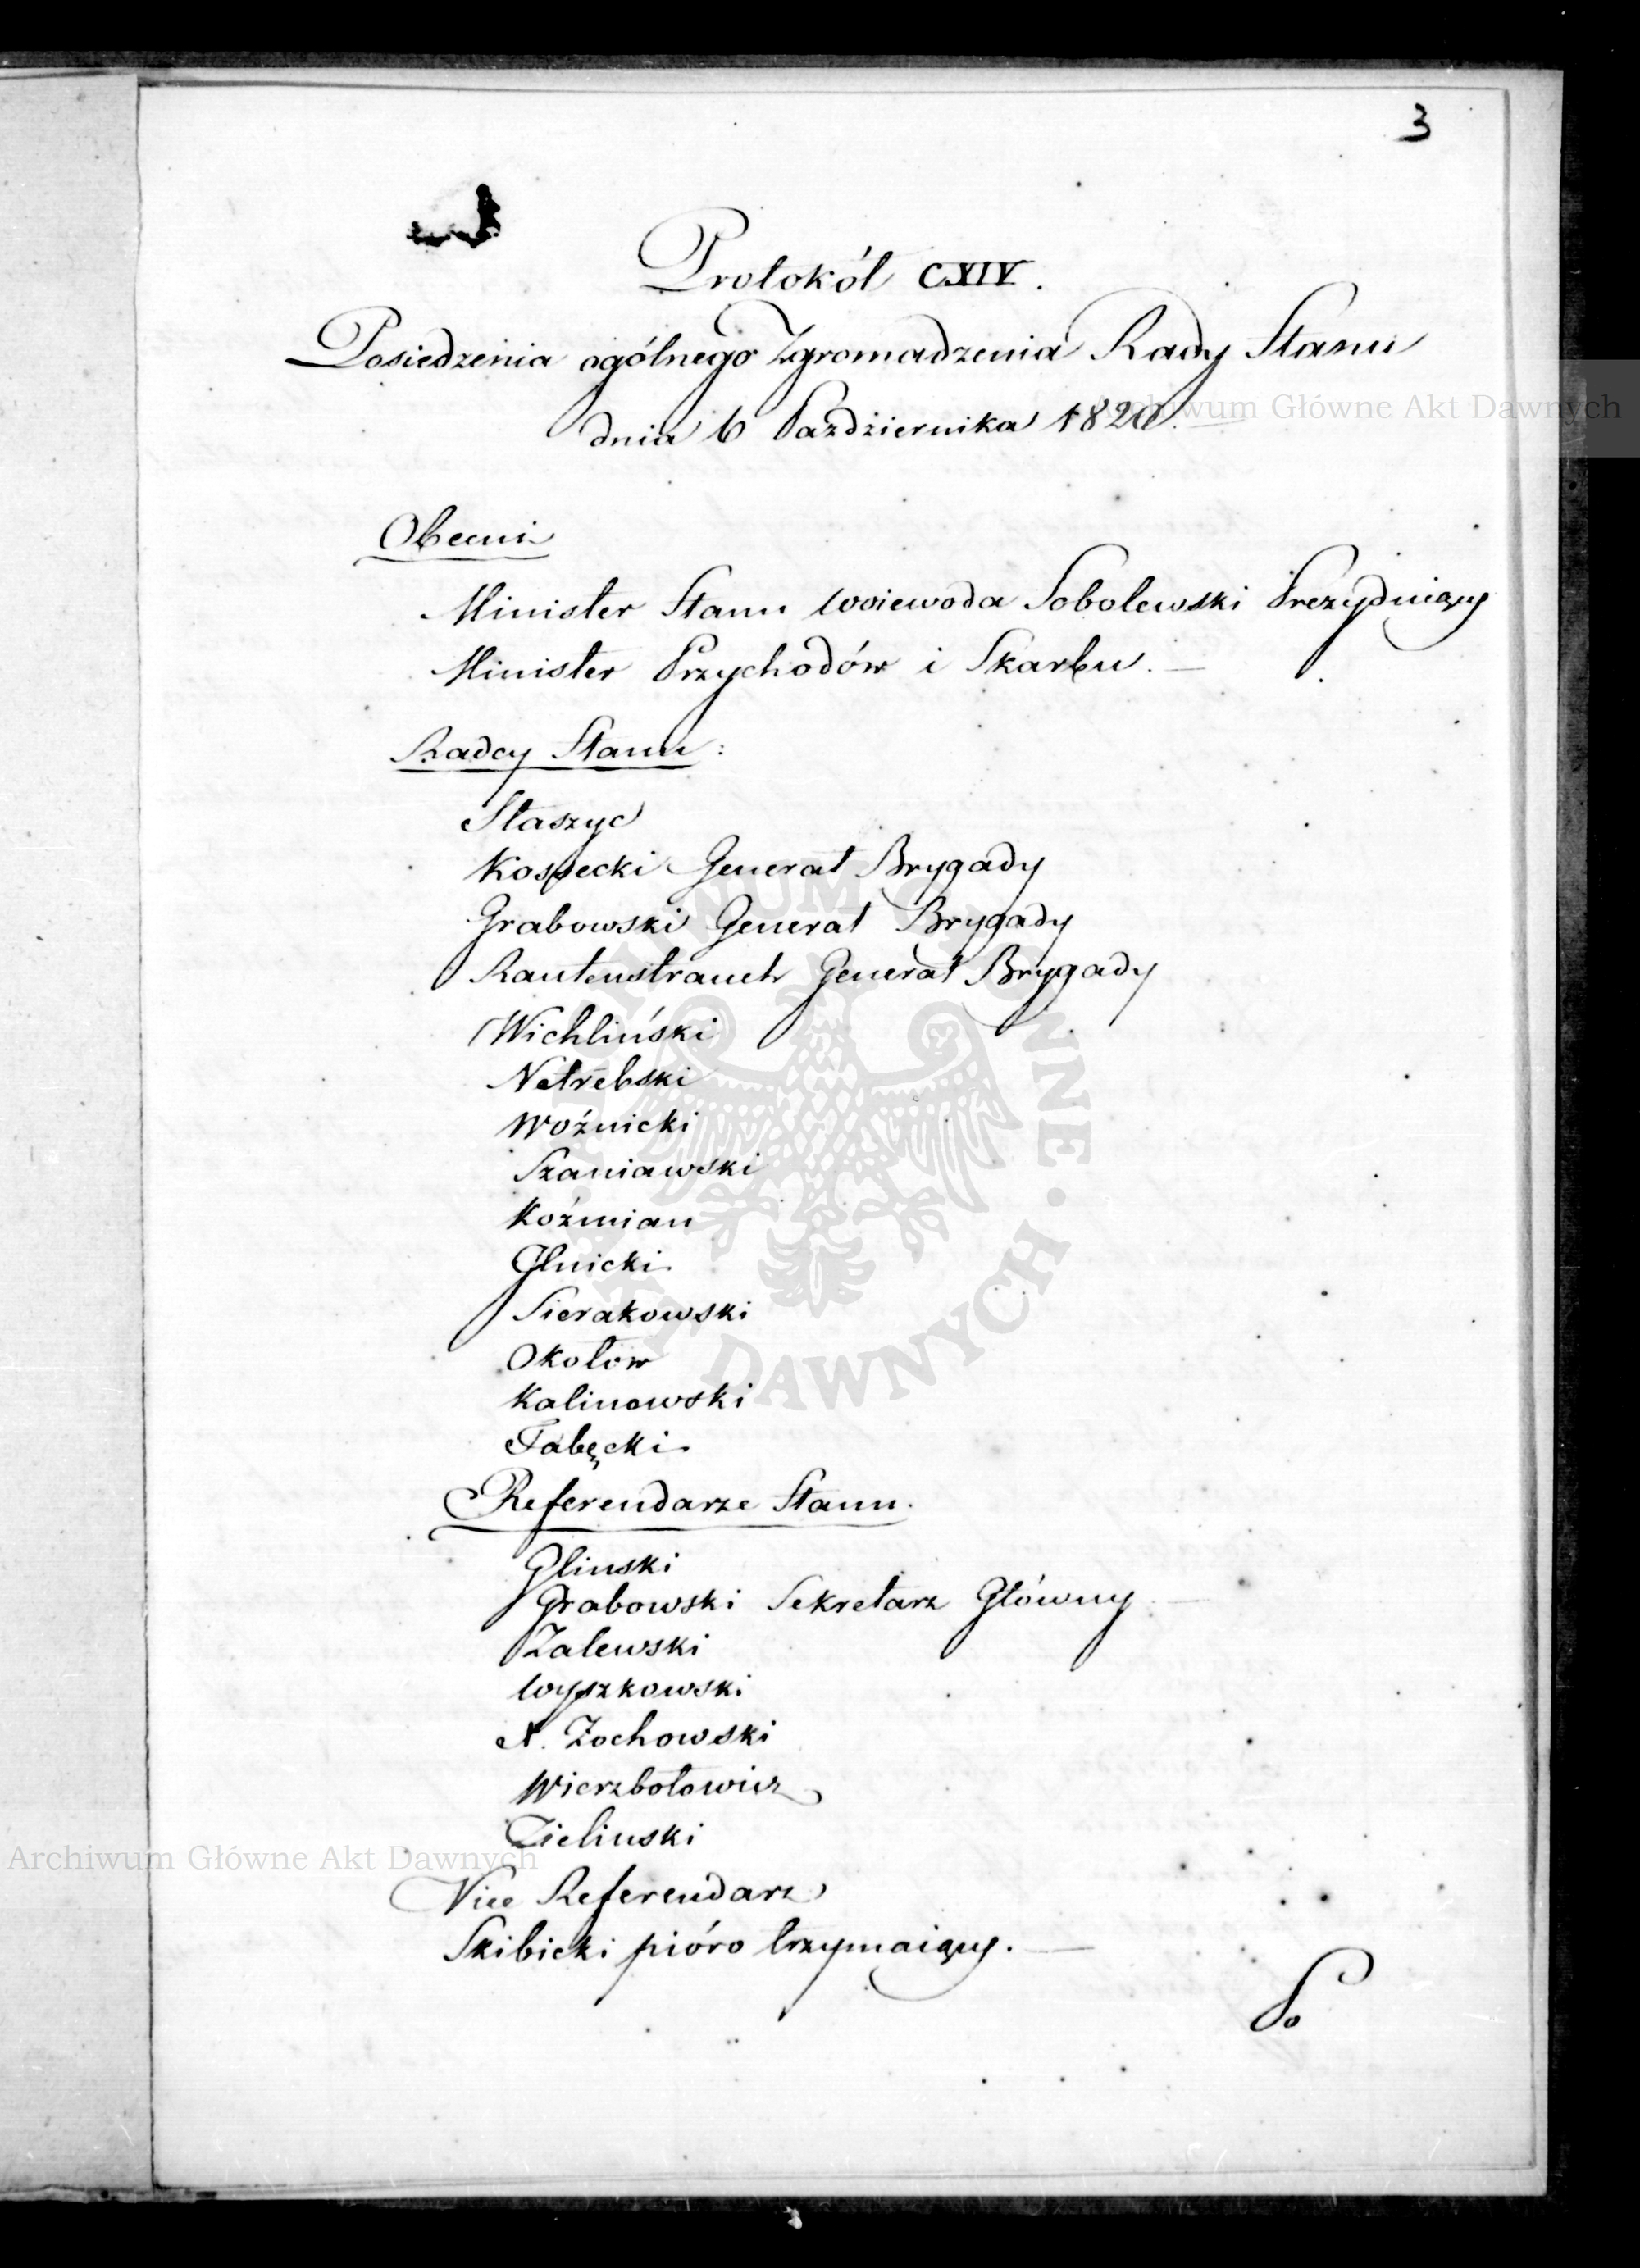 3
Protokół CXIV.
Posiedzenia ogólnego Zgromadzenia Rady Stanu
dnia 6 Października 1820.
Archiwum Główne Akt Dawnych
Obecni
Minister Stanu Woiewoda Sobolewski Prezyduiący
Minister Przychodów i Skarbu. —
Radcy Stanu:
Staszyc
Kossecki Generał Brygady
Grabowski Generał Brygady
Rautenstrauch Generał Brygady
Wichliński
Netrebski
Woźnicki
Szaniawski
Koźmian
Glnicki
Sierakowski
Okołow
Kalinowski
Fabęcki
Referendarze Stanu.
Glinski
Grabowski Sekretarz Główny —
Zalewski
Wyszkowski
N. Żochowski
Wierzbołowicz
Zielinski
Archiwum Główne Akt Dawnych
Vice Referendarz
Skibicki pióro trzymaiący. —
Po
ARCHIWUM GŁÓWNE AKT DAWNYCH